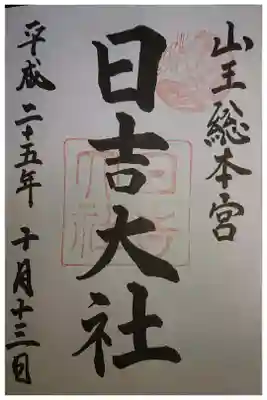 山王総本宮
日吉大社
平成二十五年 十月十三日